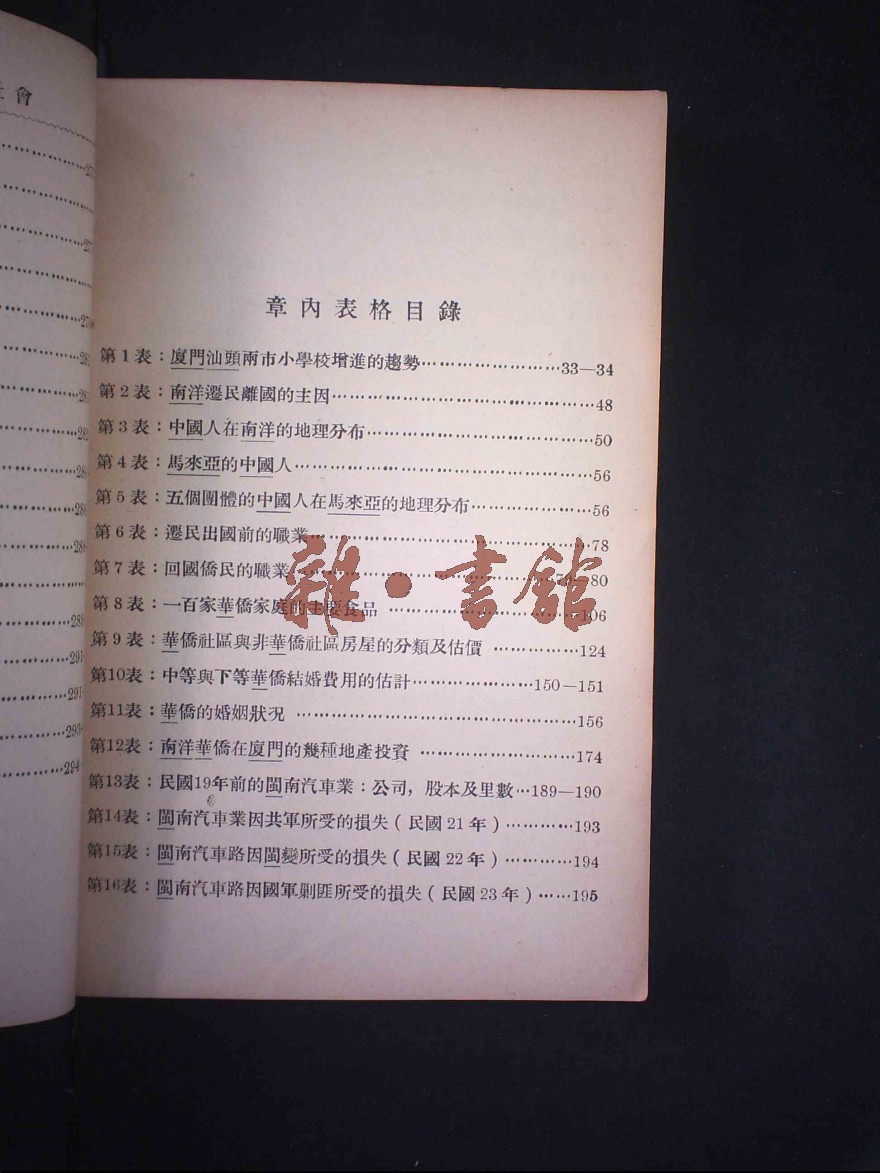 會
27
27
27
28
28
28
28
28
28
289
291
291
293
294
章內表格目錄
第1表：廈門汕頭兩市小學校增進的趨勢…………………33—34
第2表：南洋遷民離國的主因……………………………48
第3表：中國人在南洋的地理分布…………………………50
第4表：馬來亞的中國人…………………………………56
第5表：五個團體的中國人在馬來亞的地理分布……………56
第6表：遷民出國前的職業………………………………78
第7表：回國僑民的職業……………………………79—80
第8表：一百家華僑家庭的主要食品………………………106
第9表：華僑社區與非華僑社區房屋的分類及估價……………124
第10表：中等與下等華僑結婚費用的估計………………150—151
第11表：華僑的婚姻狀況………………………………156
第12表：南洋華僑在廈門的幾種地產投資…………………174
第13表：民國19年前的閩南汽車業：公司，股本及里數…189—190
第14表：閩南汽車業因共軍所受的損失(民國21年)…………193
第15表：閩南汽車路因閩變所受的損失(民國22年)…………194
第16表：閩南汽車路因國軍剿匪所受的損失(民國23年)……195
雜·書館